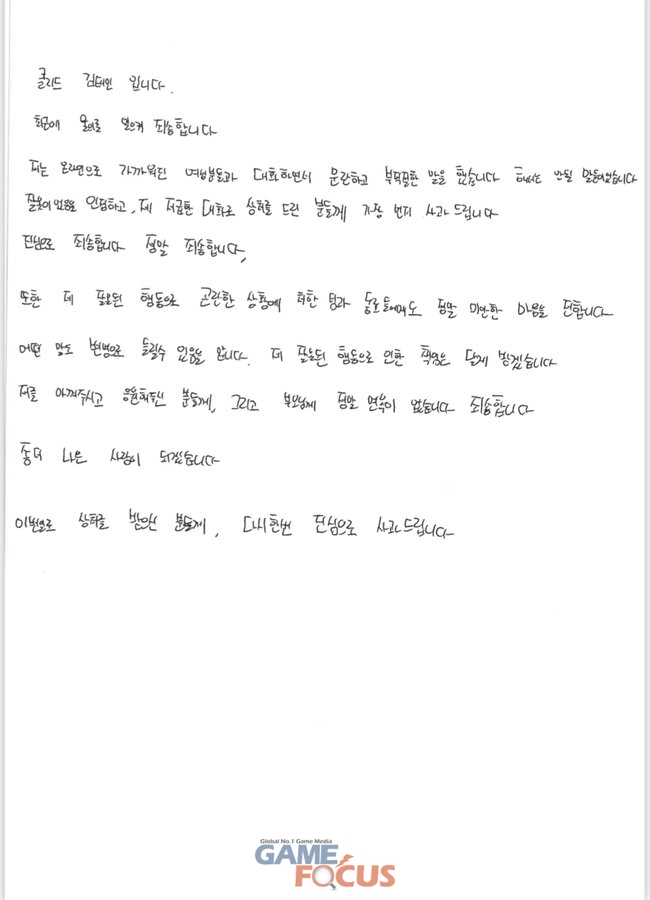 클리드 김태민 입니다.
최근에 물의를 일으켜 죄송합니다
저는 온라인으로 가까워진 여성분들과 대화하면서 문란하고 부적절한 말을 했습니다 해서는 안될 말들이었습니다
잘못이 있음을 인정하고, 제 저급한 대화로 상처를 드린 분들께 가장 먼저 사과드립니다
진심으로 죄송합니다 정말 죄송합니다,
또한 제 잘못된 행동으로 곤란한 상황에 처한 팀과 동료들에게도 정말 미안한 마음을 전합니다
어떤 말도 변명으로 들릴수 있음을 압니다. 제 잘못된 행동으로 인한 책임은 달게 받겠습니다
저를 아껴주시고 응원해주신 분들께, 그리고 부모님께 정말 면목이 없습니다 죄송합니다
좀더 나은 사람이 되겠습니다
이번일로 상처를 받으신 분들께, 다시한번 진심으로 사과드립니다
Global No.1 Game Media
GAME
FOCUS